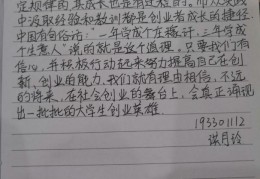 定规律的，其成长也是有过程的。而从实践
中汲取经验和教训都是创业者成长的捷径
中国有句俗话："一年学成个庄稼汉，三年学成
个生意人"说的就是这个道理。只要我们有
信心，并积极行动起来努力提高自己在创
新、创业的能力，我们就有理由相信，不远
的将来，在社会创业的舞台上，会真正涌现
出一批批的大学生创业英雄
193301112
谋月玲